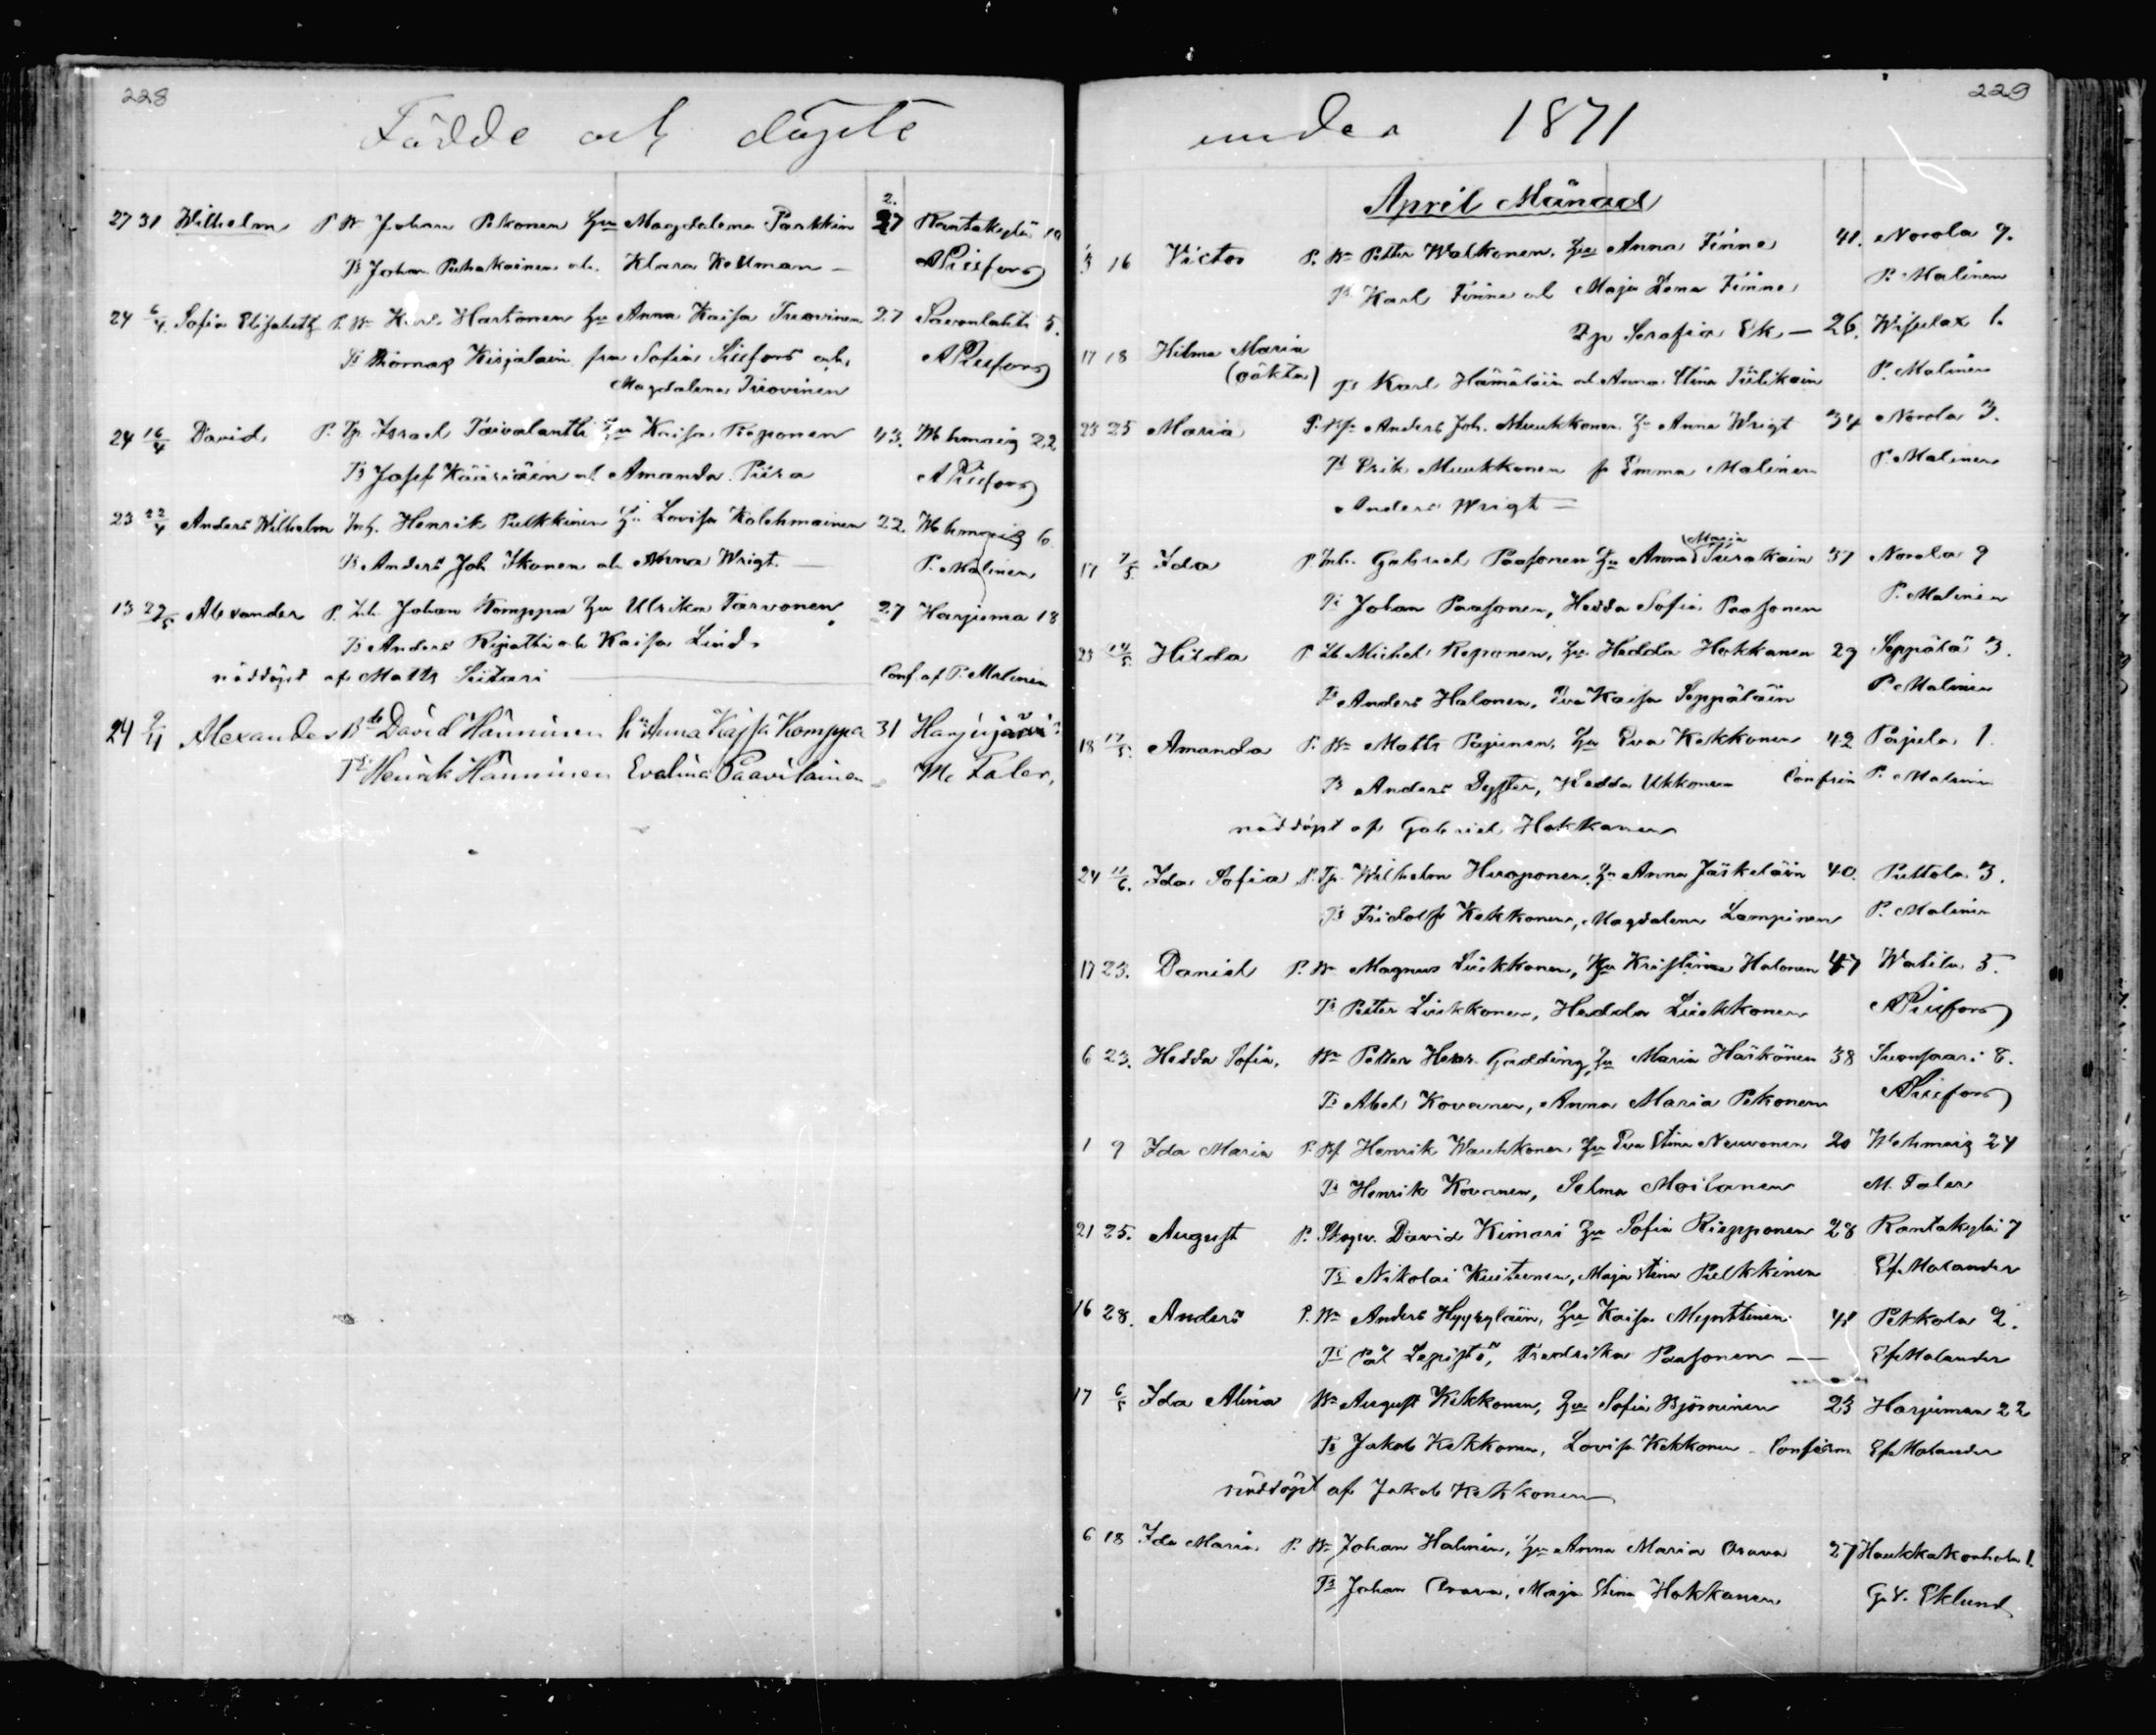 228
Födde och döpte
27 31 Wilhelm P. Bd Johan Pekonen Hu Magdalena Parkkin 27 Rantakylä 10
Ts Johan Puhakainen och Klara Kellman — A Piisfors
24 6/4 Sofia Elisabeth P. Bn Karl Hartonen Hu Anna Kaisa Turovinen 27 Savonlahti 5.
Ts Thomas Kirjalain fru Sofia Piisfors och A Piisfors
Magdalena
24 16/4 David P. Tp Israel Taivalantti Hu Kaisa Reponen 43. Wehmaig 22
Ts Josef Kääriäin och Amanda Piira A Piisfors
23 22/4 Anders Wilhelm Inh. Henrik Pulkkinen Hu Lovisa Kolehmainen 22. Wehmaig 6
Ts Anders Joh Ikonen och Anna Wrigt — P. Malinen
13 29/5 Alexander P. Inh. Johan Komppa Hu Ulrika Tarvonen 27 Harjuma 18
Ts Anders och Kaisa Lind.
nöddöpt af Matts Siitari — Conf. af P. Malinen
24 9/11 Alexander Bd David Hänninen Hu Anna Kajsa Komppa 31 Harjujärvi
Ts Henrik Hänninen Evelina Paavilainen M. Faler,
229
under 1871
April Månad
3 16 Victor P. Bn Petter Walkonen, Hu Anna Finne 41. Norola 9.
Ts Karl Finne och Maja Lena Finne P. Malinen
Pig Serafia Ek — 26. Wisulax 1.
17 18 Hilma Maria
(oäkta) Ts Karl Hämäläin och Anna Stina Tiilikain P. Malinen
23 25 Maria P. Bs Anders Joh. Muukkonen Hu Anna Wrigt 34 Norola 3.
Ts Erik Muukkonen p Emma Malinen P. Malinen
Anders Wrigt —
Maria
17 7/5 Ida P. Inh. Gabriel Paasonen Hu Anna Turakain 37 Norola 9
Ts Johan Paasonen, Hedda Sofia Paasonen P. Malinen
23 14/5 Hilda P. Lb Michel Reponen, Hu Hedda Hokkanen 29 Seppälä 3.
Ts Anders Halonen, Eva Kaisa Seppäläin P. Malinen
18 17/5 Amanda P. Bn Matts Pajunen, Hu Eva Kekkonen 42 Pajula 1.
Ts Anders Dyster, Hedda Ukkonen Confirm P. Malinen
nöddöpt af Gabriel Hokkanen
24 11/6. Ida Sofia P. Tp Wilhelm Huoponen, Hu Anna Jäskeläin 40. Puttola 3.
Ts Fridolf Kekkonen, Magdalena Lampinen P. Malinen
17 23. Daniel P. Bn Magnus Liukkonen, Hu Kristina Halonen 47 Watila 5.
Ts Petter Liukkonen, Hedda Liukkonen A Piisfors
6 23. Hedda Sofia. Bn Petter Henr. Gadding, Hu Maria Härkönen 38 Suonsaari 8.
Ts Abel Kovanen, Anna Maria Pekonen A Piisfors
1 9 Ida Maria P. Bs Henrik Wauhkonen Hu Eva Stina Neuvonen 20 Wehmaig 24
Ts Henrik Kovanen, Selma Moilanen M. Faler
21 25. August P. Skogv. David Kimari Hu Sofia Riepponen 28 Rantakylä 7
Ts Nikolai Kuitunen, Maja Stina Pulkkinen Ef Molander
16 28. Anders P. Bn Anders Hyyryläin, Hu Kaisa Mynttinen 41 Pekkola 2.
Ts Pål Lepistö, Fredrika Paasonen — Ef Molander
17 6/5 Ida Alina Bn August Kekkonen, Hu Sofia Björninen 23 Harjumaa 22
Ts Jakob Kekkonen, Lovisa Kekkonen Confirm Ef Molander
nöddöpt af Jakob Kekkonen
6 18 Ida Maria P. Bn Johan Halinen, Hu Anna Maria Orava 27 Haukkakorhola 1.
Ts Johan Orava, Maja Stina Hokkanen G. V. Eklund